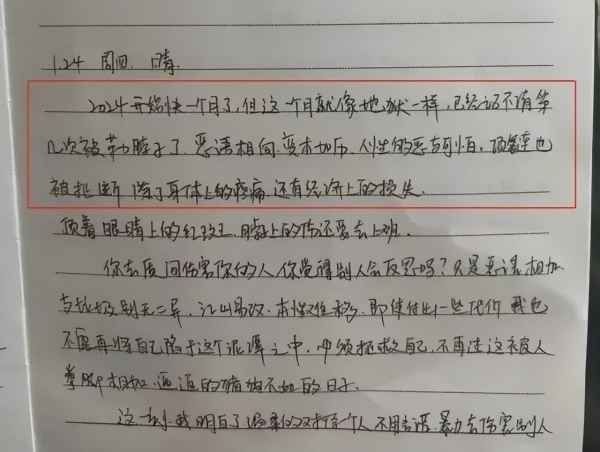 1.24 周四 晴
2024开始快一个月了,但这一个月就像地狱一样,已经记不清第
几次被勒脖子了 恶语相向 变本加厉 人性的恶真可怕。项链也
被扯断 除了身体上的疼痛 还有经济上的损失.
顶着眼睛上的红斑 脖子上的伤还要去上班.
你去质问伤害你的人你觉得别人会反思吗?只是恶语相加
与 别无二异,江山易改.本性难移,即使付出一些代价 我也
不愿再将自己陷于这个泥潭之中,必须拯救自己,不再过这被人
拳脚相加 过的猪狗不如的日子.
这一刻我明白了 温柔的对待一个人 不用言语.暴力去伤害别人